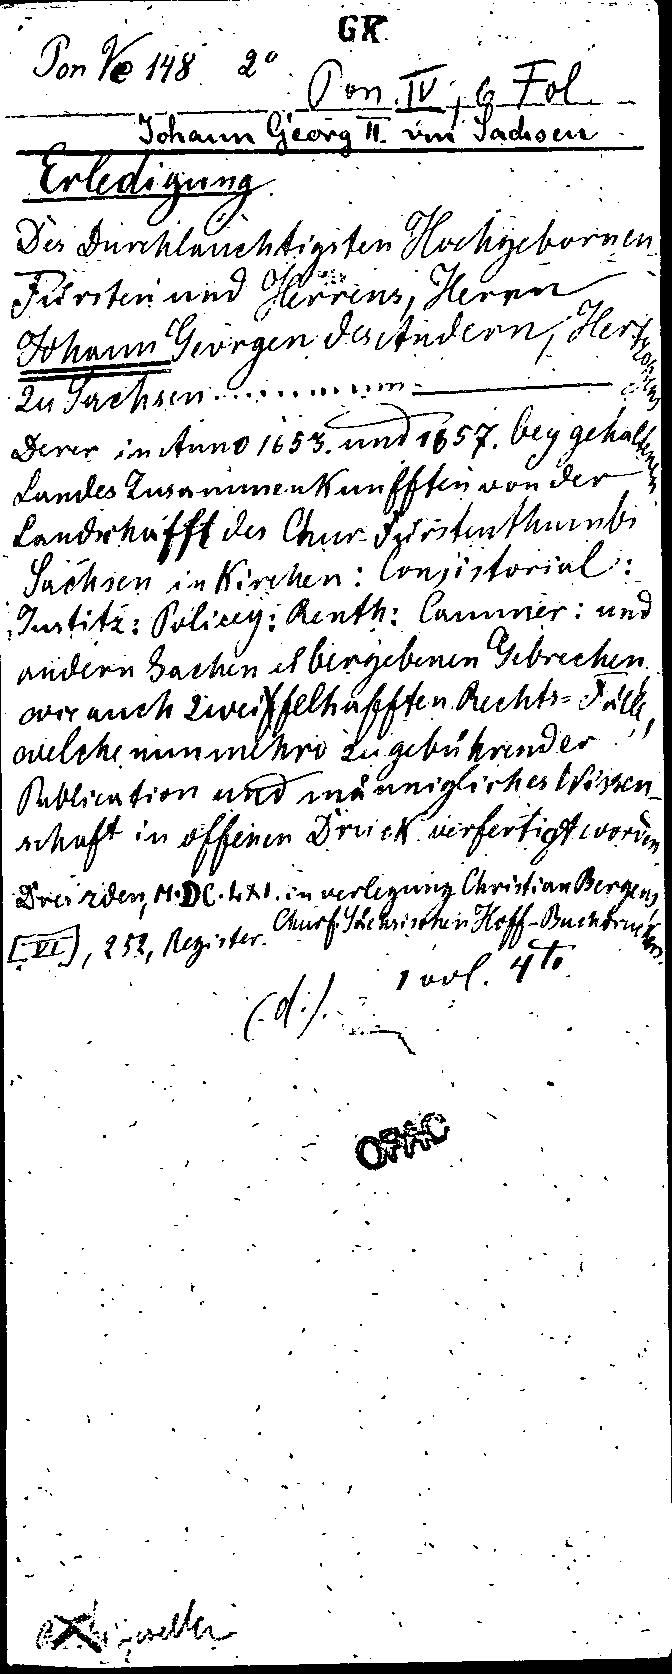 GK
Pon Ve 148 2°
Pon. IV, 6 Fol.
Johann Georg II. von Sachsen
Erledigung
Des Durchlauchtigsten Hochgebornen
Fürsten und Herrens, Herrn
Johann Georgen des Andern, Hertzogens
zu Sachsen..............
Derer in Anno 1653. und 1657. bey gehaltenen
Landes Zusammenkunfften von der
Landschafft des Chur-Fürstenthumbs
Sachsen in Kirchen: Consistorial:
Justitz: Policey: Renth: Cammer: und
andern Sachen übergebenen Gebrechen
wie auch zweiffelhafften Rechts-Fälle,
welche nunmehro zu gebührender
Publication und männigliches Wissen-
schaft in offenen Druck verfertigt worden
Dreszden, M.DC.LXI. in verlegung Christian Bergens
Churf. Sächsischen Hoff-Buchdruckers.
[VI], 252, Register.
1 vol. 4to
(d.).
OPAC